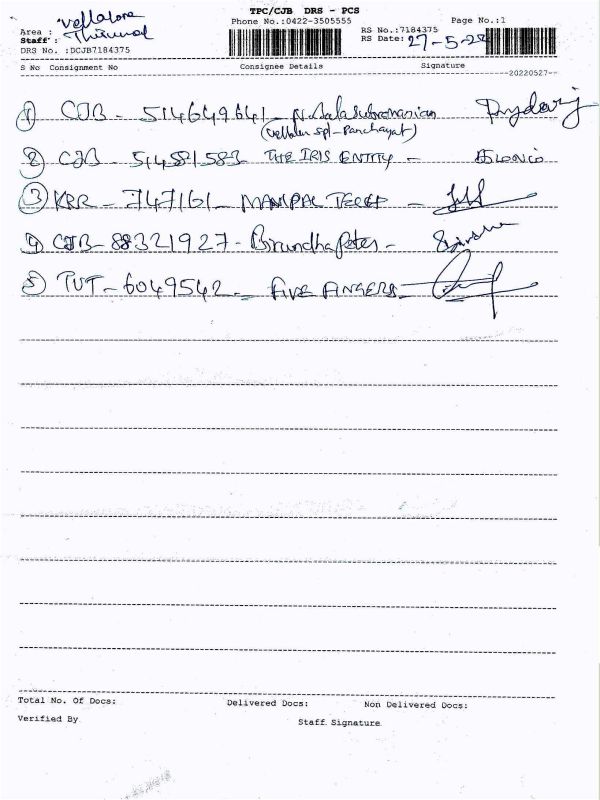 TPC/CJB DRS - PCS
Vellalore
Phone No.:0422-3505555 Page No.:1
Area :
Staff : Thirumal
RS No.:7184375
RS Date: 27-5-22
DRS No. :DCJB7184375
S No Consignment No Consignee Details Signature
--20220527--
1 CJB - 514649641 - N. Balasubramanian
(Vellalur spl - Panchayat)
2 CJB - 514581583 - THE IRIS ENTITY -
3 KRR - 747161 - MANIPAL TECH
4 CJB - 88321927 - Brundha Peter -
5 TUT - 6049542 - FIVE FINGERS -
Total No. Of Docs: Delivered Docs: Non Delivered Docs:
Verified By Staff Signature